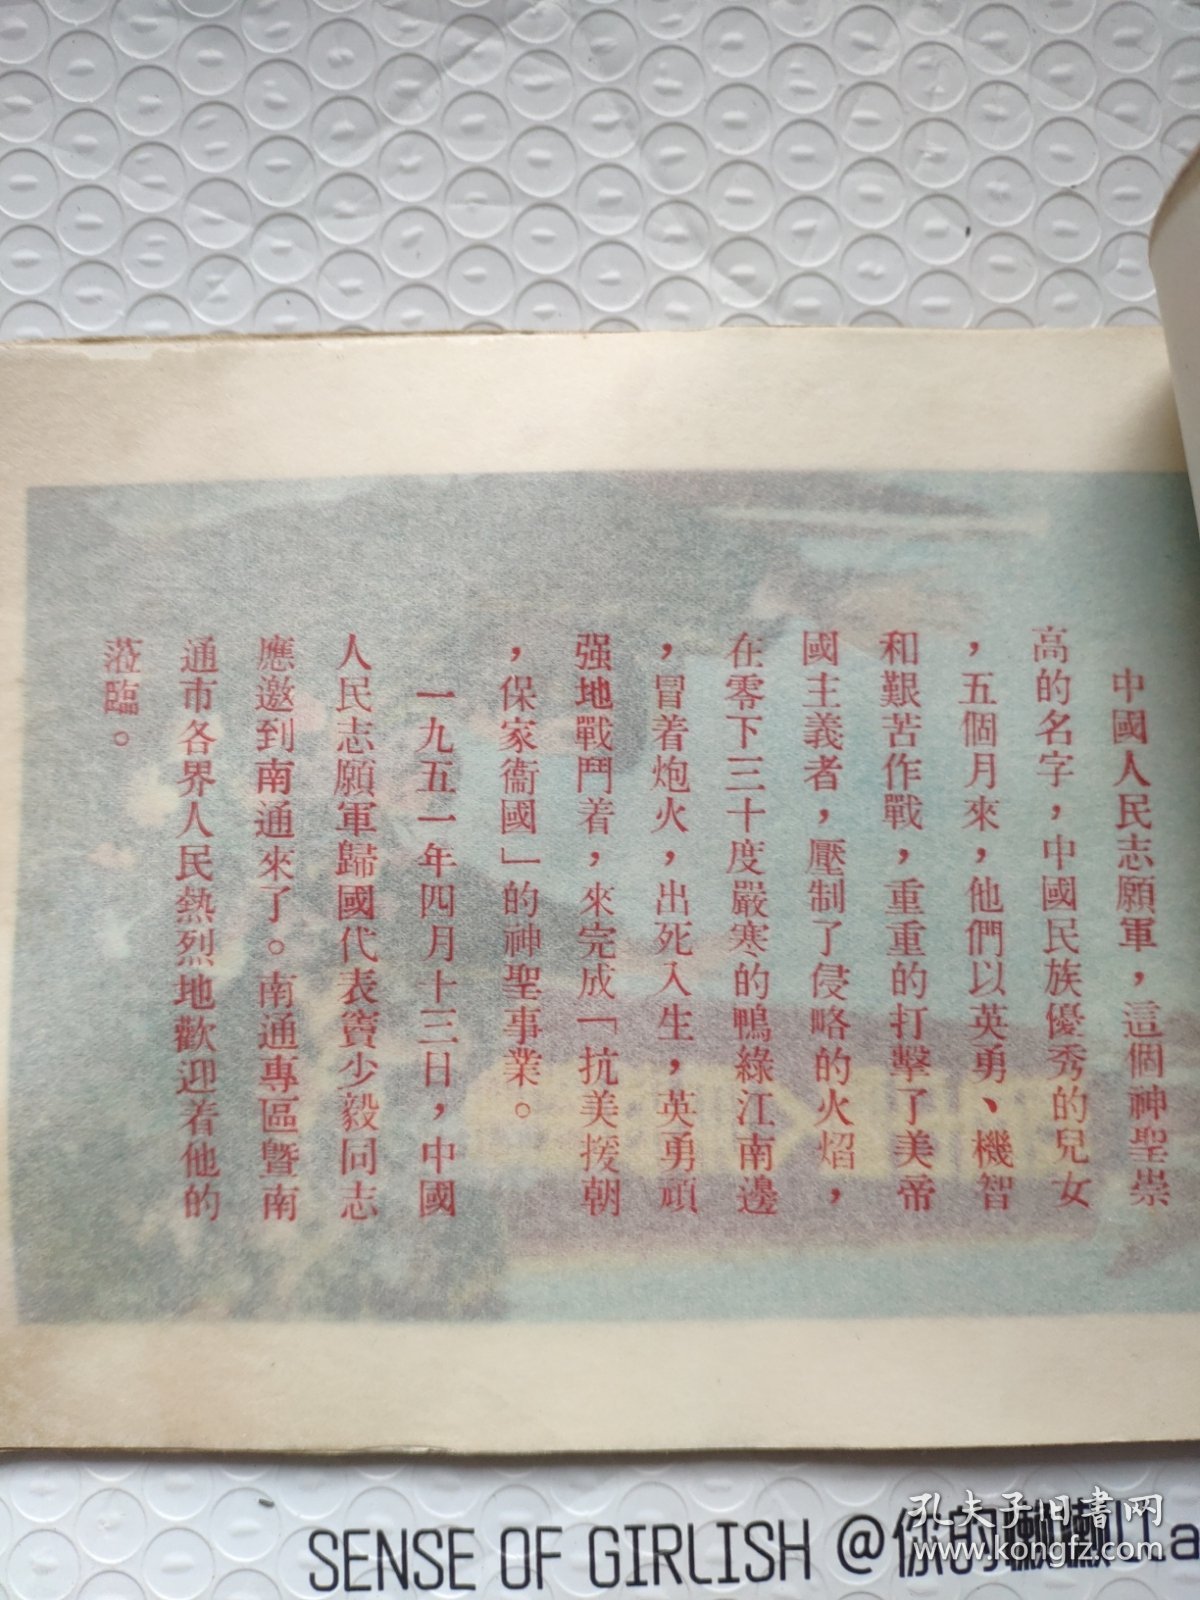 中國人民志願軍，這個神聖崇
高的名字，中國民族優秀的兒女
，五個月來，他們以英勇、機智
和艱苦作戰，重重的打擊了美帝
國主義者，壓制了侵略的火焰，
在零下三十度嚴寒的鴨綠江南邊
，冒着炮火，出死入生，英勇頑
强地戰鬥着，來完成「抗美援朝
，保家衞國」的神聖事業。
一九五一年四月十三日，中國
人民志願軍歸國代表竇少毅同志
應邀到南通來了。南通專區暨南
通市各界人民熱烈地歡迎着他的
蒞臨。
SENSE OF GIRLISH @你的
孔夫子旧書网
www.kongfz.com